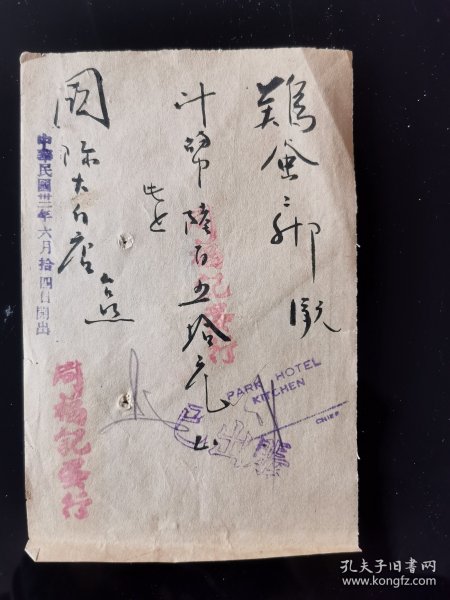 鷄蛋二
計幣陸百五拾元
此上
國際大飯店 台照
中華民國卅三年六月拾四日開出
周福記蛋行
周福記蛋行
PARK HOTEL
KITCHEN
CHIEF
孔夫子旧书网
www.kongfz.com